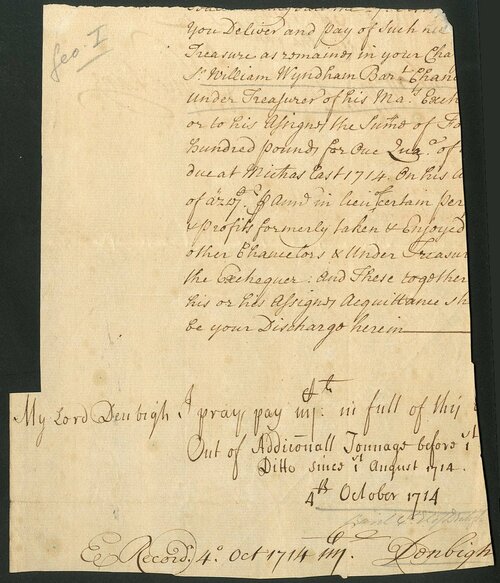 Geo. I
You Deliver and pay of Such his
Treasure as remains in your Cha
Sr. William Wyndham Bart. Chan
under Treasurer of his Mats. Exche
or to his Assignes the Sume of Fo
hundred pounds for One Quar. of
due at Michas last 1714. On his
of p Ann̄ in lieu certain per
& profits formerly taken & Enjoyed
other Chancelors & Under Treasur
the Exchequer: And These together
his or his Assignes Acquittance sh
be your Discharge herein
My Lord Denbigh I pray pay in full of this
Out of Addiconall Tonnage before 1st
Ditto since 1st August 1714.
4th October 1714
Record. 4o. Oct 1714
Denbigh